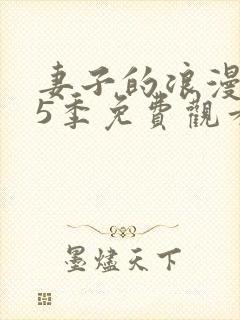 妻子的浪漫
5季免費觀
墨燼天下